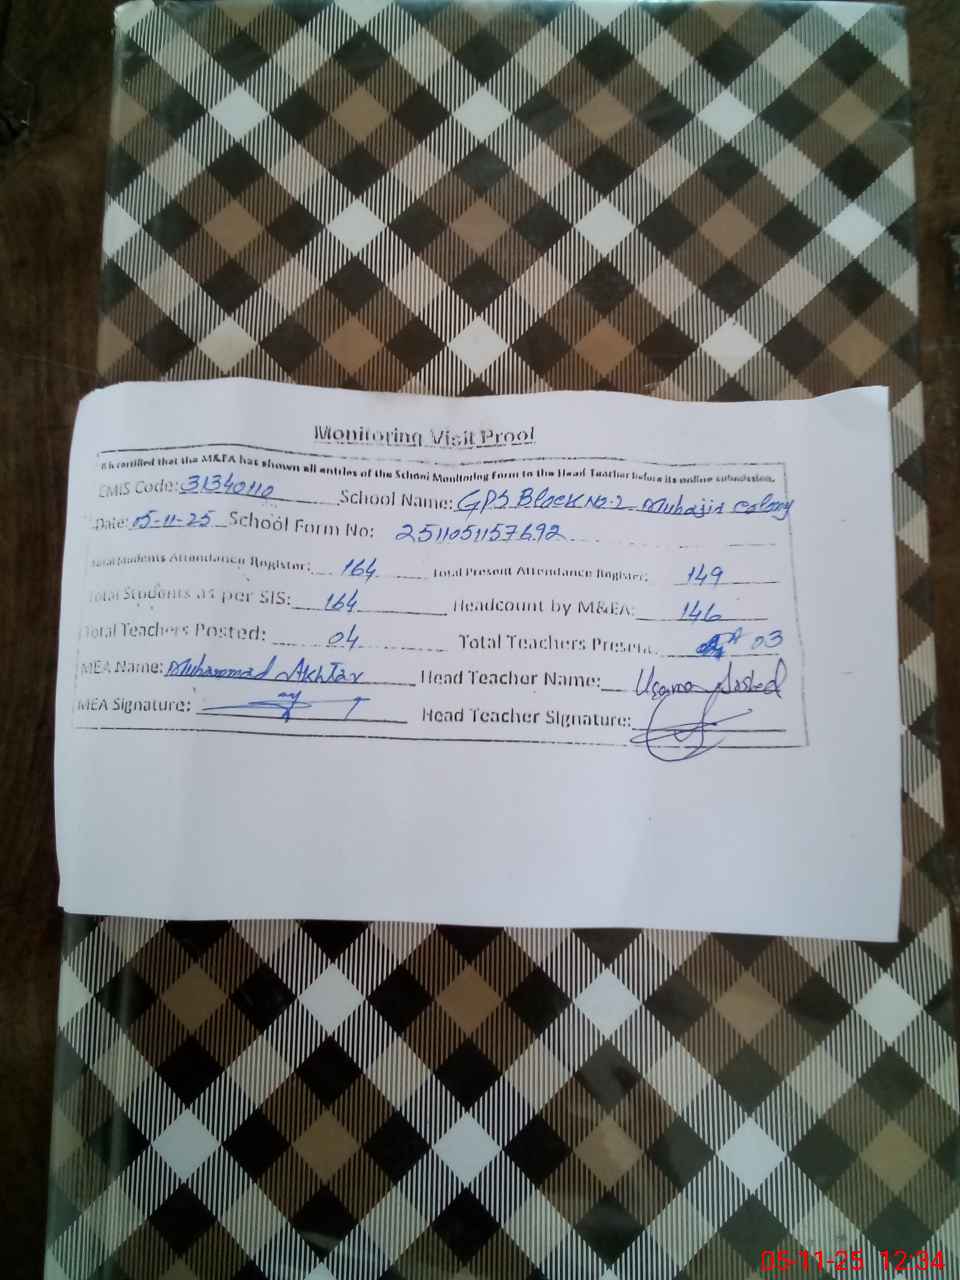 Monitoring Visit Proof
It is certified that the M&EA has shown all entries of the School Monitoring Form to the Head Teacher before its online submission.
EMIS Code: 31340110 School Name: GPS Block No-2 Muhajir Colony
Date: 05-11-25 School Form No: 2511051157692
Total Students Attendance Register: 164 Total Present Attendance Register: 149
Total Students as per SIS: 164 Headcount by M&EA: 146
Total Teachers Posted: 04 Total Teachers Present: 03
MEA Name: Muhammad Akhtar Head Teacher Name: Usama
MEA Signature: Head Teacher Signature:
05-11-25 12:34